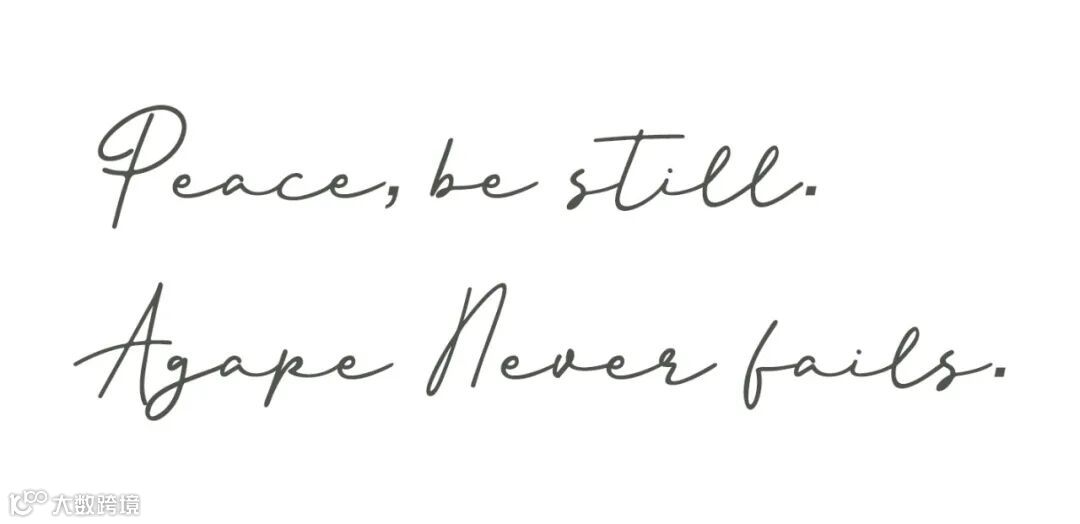 Peace, be still.
Agape Never fails.
大数跨境